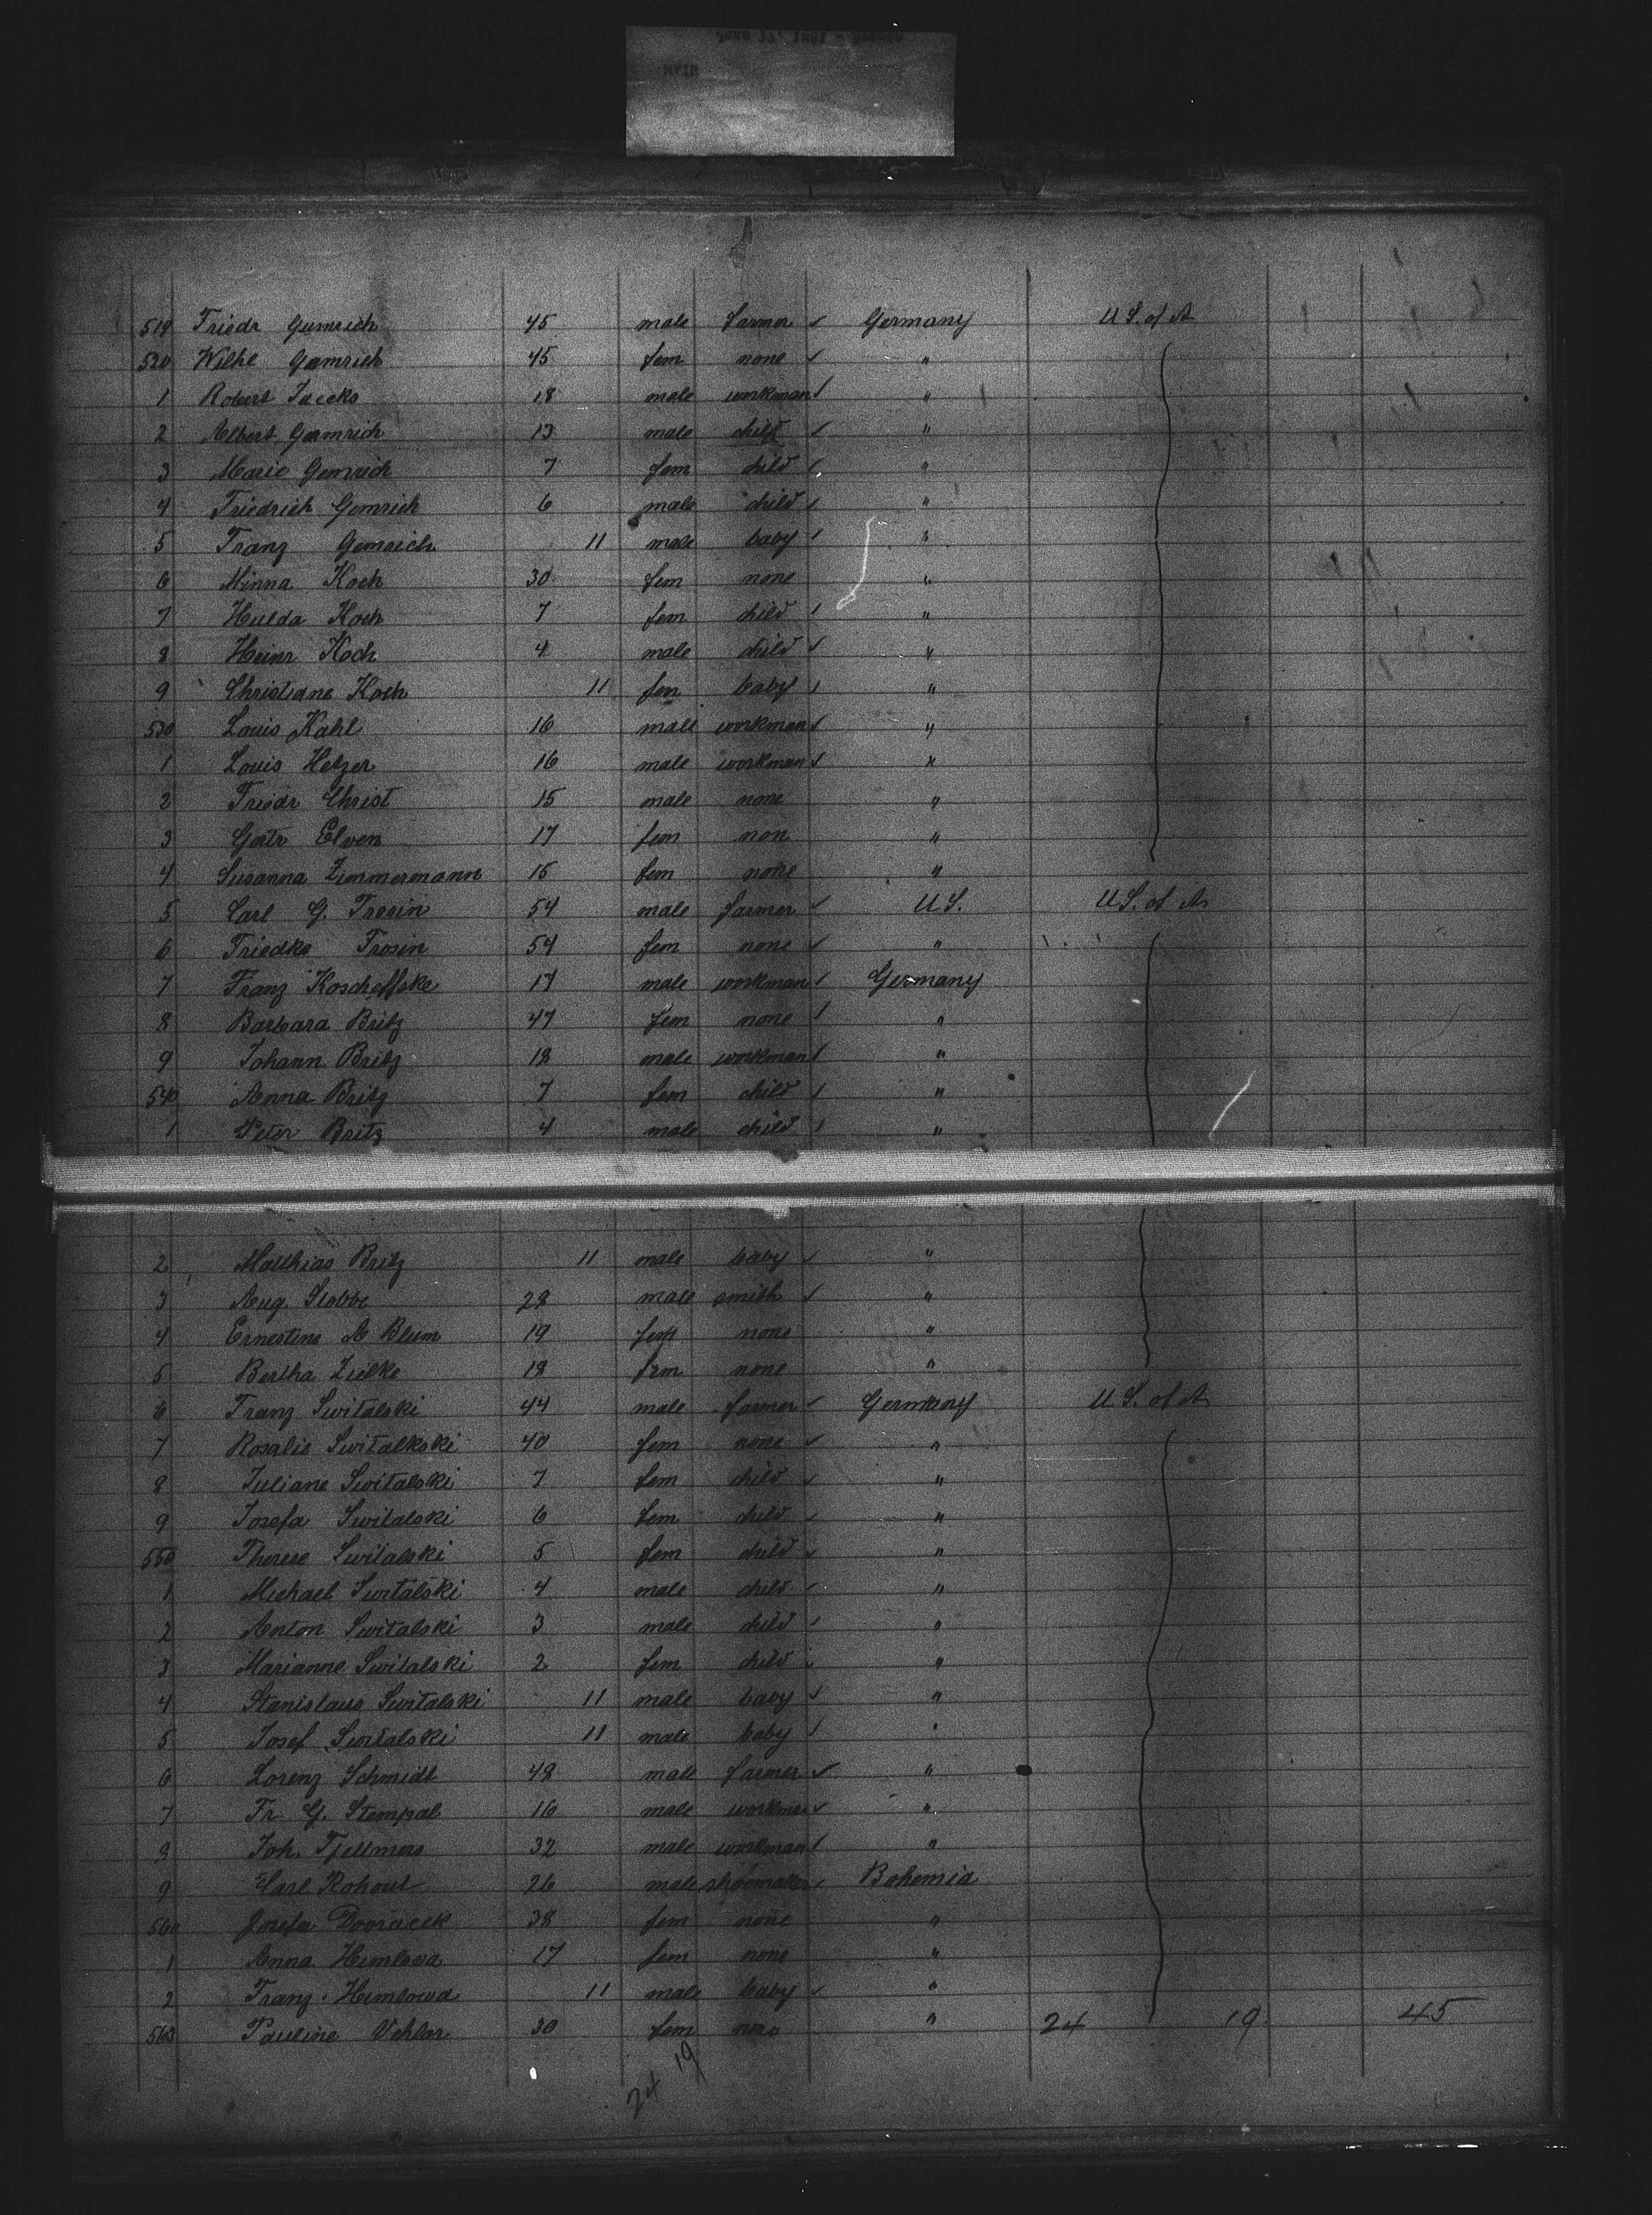 519 Friedr Gumrich 45 male farmer ✓ Germany U S. of A
520 Wilhe Gamrich 45 fem none ✓ "
1 Robert Jaecks 18 male workman ✓ "
2 Albert Gemrich 13 male child ✓ "
3 Marie Gemrich 7 fem child ✓ "
4 Friedrich Gemrich 6 male child ✓ "
5 Franz Gemrich 11 male baby ✓ "
6 Minna Koch 30 fem none "
7 Hulda Koch 7 fem child ✓ "
8 Heinr Koch 4 male child ✓ "
9 Christiane Koch 11 fem baby ✓ "
530 Louis Kahl 16 male workman ✓ "
1 Louis Helzer 16 male workman ✓ "
2 Friedr Christ 15 male none "
3 Gertr Elven 17 fem non "
4 Susanna Zimmermann 15 fem none "
5 Carl G. Trosin 54 male farmer ✓ U S. U S. of A
6 Friedke Trosin 54 fem none ✓ "
7 Franz Koscheffske 17 male workman ✓ Germany
8 Barbara Britz 47 fem none ✓ "
9 Johann Britz 18 male workman ✓ "
540 Anna Britz 7 fem child ✓ "
1 Peter Britz 4 male child ✓ "
2 Matthias Britz 11 male baby ✓ "
3 Aug. Stobbe 28 male smith ✓ "
4 Ernestine A Blum 19 fem none "
5 Bertha Zielke 18 fem none "
6 Franz Switalski 44 male farmer ✓ Germany U S. of A
7 Rosalie Switalkski 40 fem none ✓ "
8 Juliane Switalski 7 fem child ✓ "
9 Josefa Switalski 6 fem child ✓ "
550 Therese Switalski 5 fem child ✓ "
1 Michael Switalski 4 male child ✓ "
2 Anton Switalski 3 male child ✓ "
3 Marianne Switalski 2 fem child ✓ "
4 Stanislaus Switalski 11 male baby ✓ "
5 Josef Switalski 11 male baby ✓ "
6 Lorenz Schmidt 48 male farmer ✓ "
7 Fr. G. Stempal 16 male workman ✓ "
8 Joh. 32 male workman ✓ "
9 Carl Rohout 26 male shoemaker ✓ Bohemia
560 Josefa Dvoracek 38 fem none "
1 Anna Humlova 17 fem none "
2 Franz Humlowa 11 male baby ✓ "
563 Pauline 30 fem " 24 19 45
24 19